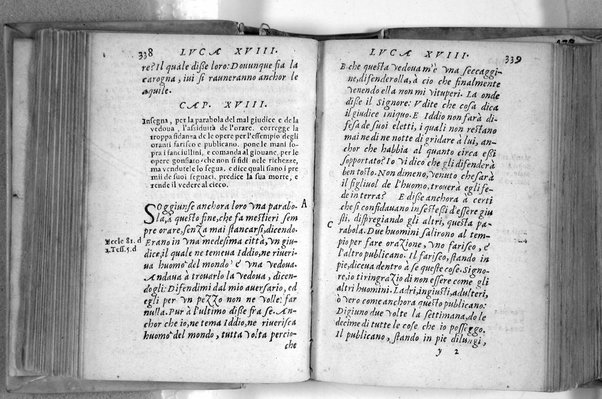 338 LVCAE XVIII.
re? Il quale disse loro: Dounque fia la
carogna, iui si rauneranno anchor le
aquile.
CAP. XVIII.
Insegna, per la parabola del mal giudice e de la
vedoua, l'assiduità de l'orare. corregge la
troppa fidanza de le opere per l'essempio degli
oranti farisco e publicano. pone le mani sopra
i fanciullini, e comanda al giouane, per le
opere gonfiato che non si fidi nele richezze,
ma vendutele lo segua. e dice quali siano i premii
de suoi seguaci, predice la sua morte, e
rende il vedere al cieco.
SOggiunse anchora loro vna parabo- A
la, a questo fine, che fa mestieri sem
pre orare, senza mai stancarsi, dicendo.
Eccle 81. d
1. Tess. 5. d
Erano in vna medesima città, vn giu-
dice, il quale ne temeua Iddio, ne riueri-
ua huomo del mondo e vna vedoua.
Andaua à trouarlo la vedoua, dicen-
dogli: Difendimi dal mio auersario, ed
egli per vn pezzo non ne volle: far
nulla. Pur à l'ultimo disse fra se. An-
chor che io, ne tema Iddio, ne riuerisca
huomo del mondo, tutta volta percio-
che
LVCAE XVIII. 339
E che questa vedoua m'è vna seccaggi-
ne, difenderolla, à cio che finalmente
venendo ella non mi vituperi. La onde
disse il Signore: Vdite che cosa dica
il giudice iniquo. E Iddio non farà di-
fesa de suoi eletti, i quali non restano
mai ne di ne notte di gridare à lui, an-
chor che habbia al quanto circa essi
sopportato? Io vi dico che gli difenderà
ben tosto. Non dimeno, venuto che sarà
il figliuol de l'huomo, trouerà egli fe-
de in terra? E disse anchora à certi
che si confidauano in se stessi d'essere giu
C sti, dispregiando gli altri, questa pa-
rabola. Due huomini salirono al tem-
pio per fare orazione, vno farisco, e
l'altro publicano. Il farisco, stando in
pie, diceua dentro à se queste cose. Signo-
re, io ti ringrazio di non essere come gli
altri huomini. Ladri, ingiusti, adulteri,
ò vero come anchora questo publicano:
Digiuno due volte la settimana, do le
decime di tutte le cose che io posseggo.
Il publicano, stando in pie di lungi,
y 2